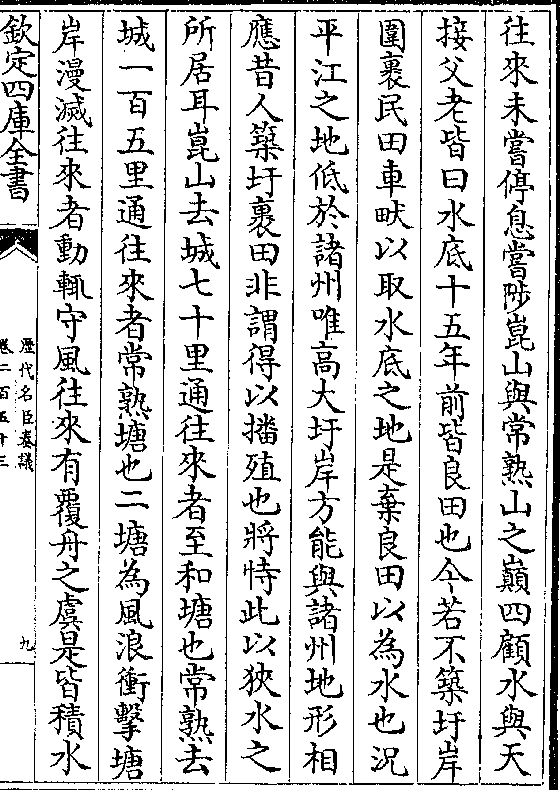 往來未嘗停息嘗陟崑山與常熟山之巔四顧水與天
接父老皆曰水底十五年前皆良田也今若不築圩岸
圍裹民田車畎以取水底之地是棄良田以為水也況
平江之地低於諸州唯高大圩岸方能與諸州地形相
應昔人築圩裹田非謂得以播殖也將恃此以狹水之
所居耳崑山去城七十里通往來者至和塘也常熟去
城一百五里通往來者常熟塘也二塘為風浪衝擊塘
岸漫滅往來者動輒守風往來有覆舟之虞是皆積水
欽定四庫全書
歷代名臣奏議
卷二百五十三
九